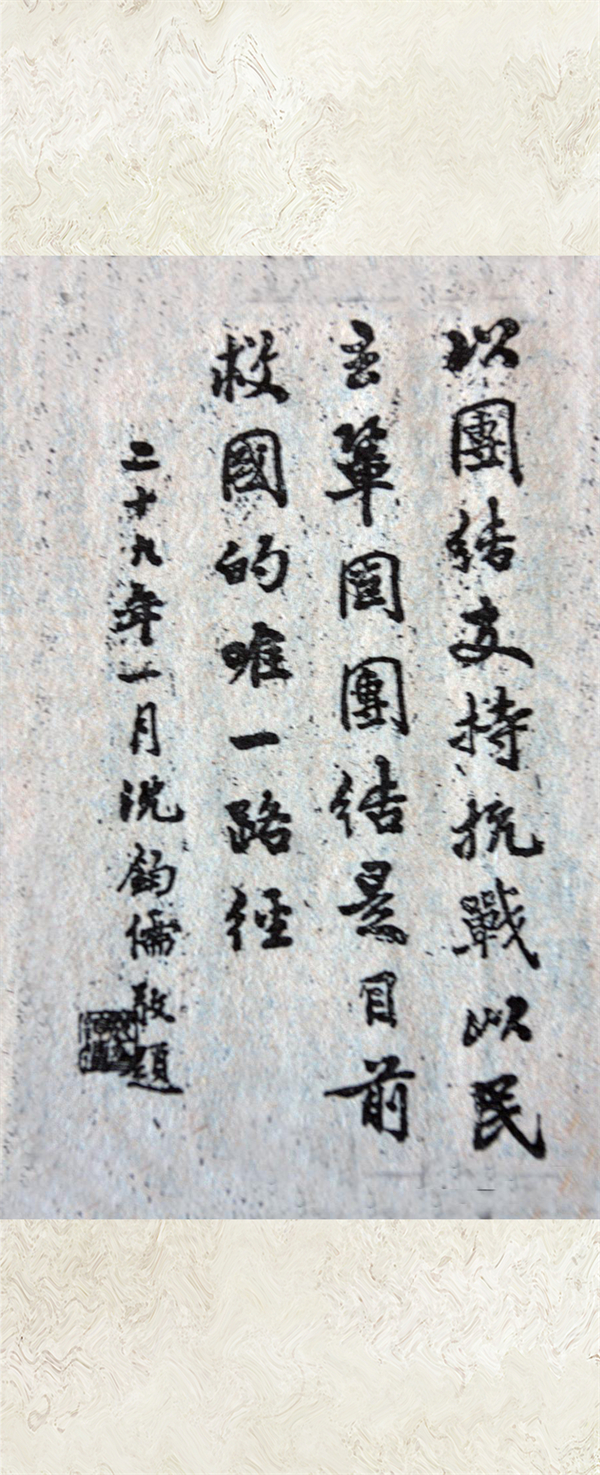 以團結支持抗戰以民
主鞏固團結是目前
救國的唯一路徑
二十九年一月沈鈞儒敬題